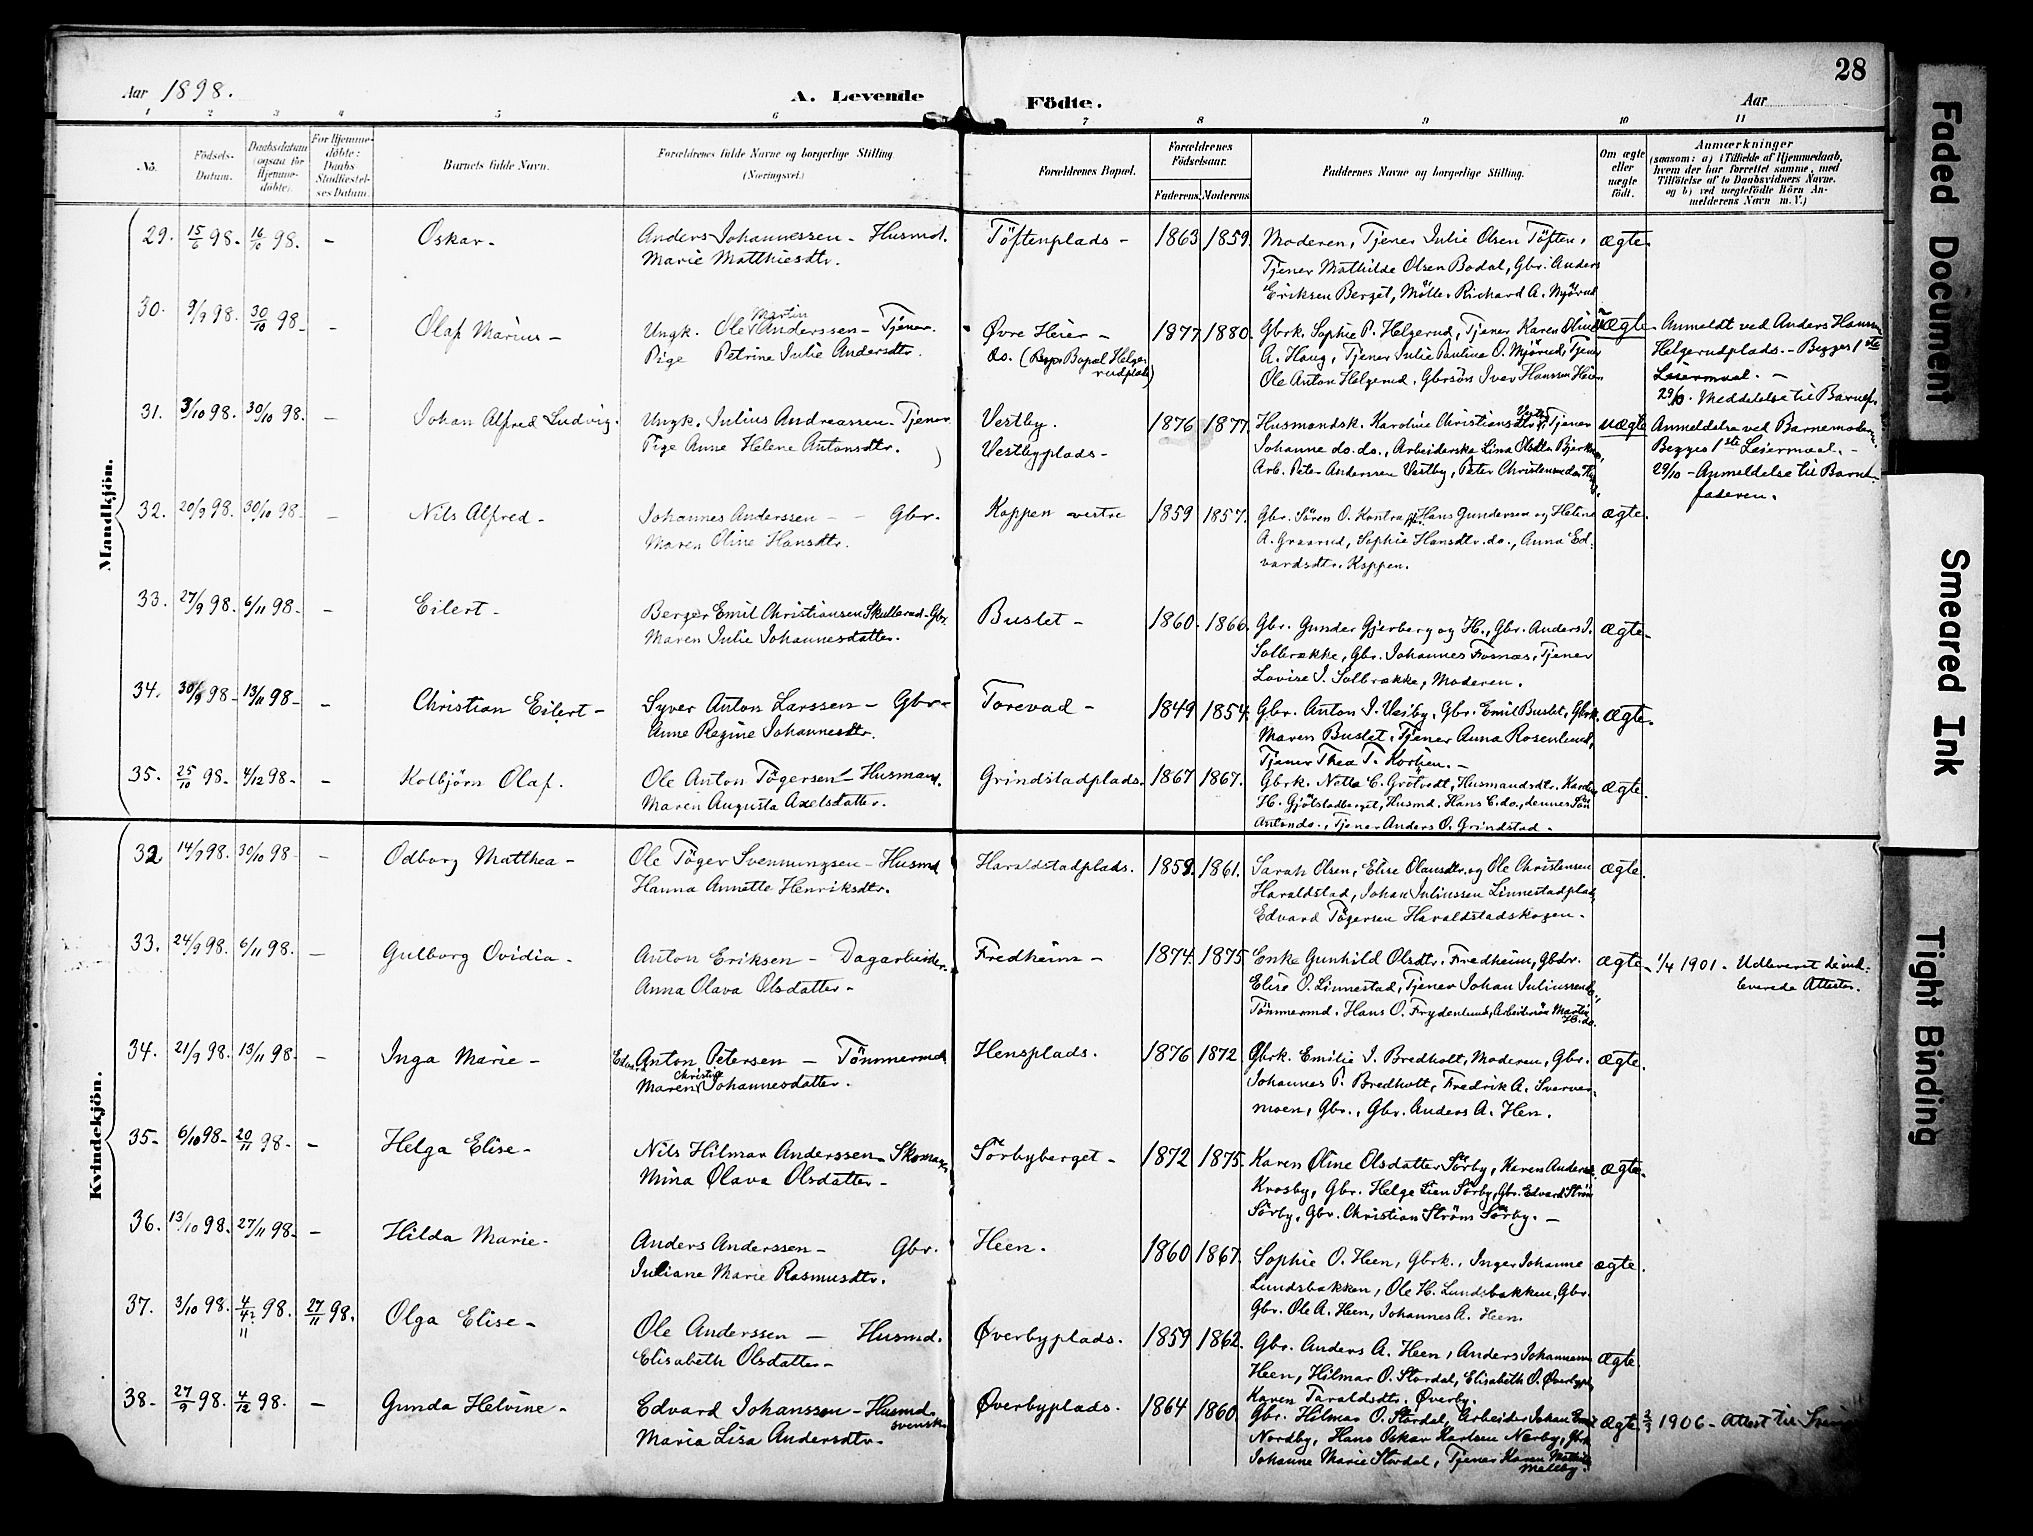 28
Aar 1898.
A. Levende Födte.
Aar
1 2 3 4 5 6 7 8 9 10 11
No.
Födsels-Datum.
Daabsdatum (ogsaa för Hjemmedöbte).
For Hjemmedöbte: Daabs Stadfæstelses Datum.
Barnets fulde Navn.
Forældrenes fulde Navne og borgerlige Stilling (Næringsvei.)
Forældrenes Bopæl.
Forældrenes Födselsaar.
Faderens Moderens
Faddernes Navne og borgerlige Stilling.
Om ægte eller uægte födt.
Anmærkninger
(saasom: a) i Tilfælde af Hjemmedaab,
hvem der har forrettet samme, med
Tilföielse af to Daabsvidners Navne.
og b) ved uægtefödte Börn An-
melderens Navn m. V.)
Mandkjön.
29. 15/6 98. 16/10 98. - Oskar. Anders Johannessen - Husmd. Töftenplads - 1863 1859. Moderen, Tjener Julie Olsen Töften, ægte.
Marie Matthiesdtr. Tjener Mathilde Olsen Bodal, Gbr. Anders
Eriksen Berget, Mölle Richard A. Mjörud
30. 9/9 98. 30/10 98. - Olaf Marius - Ungk. Ole Martin Anderssen - Tjener. Øvre Heier - 1877 1880. Gbrk. Sophie P. Helgerud, Tjener Karen Oline uægte. Anmeldt ved Anders Hanssen
Pige Petrine Julie Andersdtr. do. (Bopæl Helgerudplads) A. Haug, Tjener Julie Pauline O. Mjörud, Tjener Helgerudplads. - Begges 1ste
Ole Anton Helgerud, Gbrsön Iver Hanssen Heier Leiermaal. -
29/10. Meddelelse til Barnef.
31. 3/10 98. 30/10 98. - Johan Alfred Ludvig. Ungk. Julius Andreassen - Tjener Vestby. 1876 1877. Husmandsk. Karoline Christiansdtr Vestby, Tjener uægte Anmeldelse ved Barnemoderen.
Pige Anne Helene Antonsdtr. Vestbyplads - Johanne do. do., Arbeiderske Lina Olsdtr Begges 1ste Leiermaal. -
Arb. Peter Andersen Vestby, Peter Christensen 29/10 - Anmeldelse til Barne-
faderen.
32. 20/9 98. 30/10 98 - Nils Alfred - Johannes Anderssen - - Gbr. Koppen vestre 1859 1857. Gbr. Sören O. Kontra Hans Gundersen og Helene ægte.
Maren Oline Hansdtr. A. Graarud, Sophie Hansdtr. do., Anna Ed-
vardsdtr. Koppen.
33. 27/9 98. 6/11 98 - Eilert - Berger Emil Christiansen Skullerud - Gbr. Buslet - 1860. 1866. Gbr. Gunder Gjerberg og H., Gbr. Anders J. ægte -
Maren Julie Johannesdatter. Solbrække, Gbr. Johannes Fosnæs, Tjener
Lovise J. Solbrække, Moderen.
34. 30/9 98 - 13/11 98 - Christian Eilert - Syver Anton Larssen - Gbr - Torevad - 1849 1854. Gbr. Anton J. Vesby, Gbr. Emil Buslet, Gbrk. ægte.
Anne Regine Johannesdtr. Maren Buslet, Tjener Anna Rosenlund,
Tjener Thea T. -
35. 25/10 98 - 4/12 98 - Kolbjörn Olaf. Ole Anton Tögersen - Husmand. Grindstadplads. 1867 1867. Gbrk. Netta C. Grötvedt, Husmandsdtr. ægte.
Maren Augusta Axelsdatter. H. Gjölstadberget, Husmd. Hans E. do., dennes Sön
Anton do., Tjener Anders O. Grindstad.
Kvindekjön.
32 14/9 98. 30/10 98 - Odborg Matthea - Ole Töger Svenningsen - Husmd Haraldstadplads. 1859. 1861. Sarah Olsen, Elise Olausdtr. og Ole Christensen ægte.
Hanna Annette Henriksdtr. Haraldstad, Johan Juliussen Linnestadplads
Edvard Tögersen Haraldstadskogen -
33. 24/9 98. 6/11 98. - Gulborg Ovidia - Anton Eriksen - Dagarbeider. Fredheim - 1874 1875 Enke Gunhild Olsdtr. Fredheim, Gbdr. ægte - 1/4 1901 - Udleveret de ind-
Anna Olava Olsdatter - Elise O. Linnestad, Tjener Johan Juliussen do, leverede Attester.
Tömmermd. Hans O. Frydenlund, Arbeidersön Martin H. do.
34. 21/9 98. 13/11 98. - Inga Marie - Edvard Anton Petersen - Tömmermd. Hensplads. 1876 1872. Gbrk. Emilie J. Bredholt, Moderen, Gbr. ægte.
Maren Christine Johannesdatter. Johannes P. Bredholt, Fredrik A. Sverver-
moen, Gbr., Gbr. Anders A. Hen.
35 - 6/10 98 - 20/11 98. - Helga Elise - Nils Hilmar Anderssen - Skomager Sörbyberget - 1872 1875. Karen Oline Olsdatter Sörby, Karen Anders. ægte.
Mina Olava Olsdatter - Krosby, Gbr. Helge Lien Sörby, Gbr. Edvard Ström
Sörby, Gbr. Christian Ström Sörby. -
36. 13/10 98. 27/11 98 - Hilda Marie - Anders Anderssen - Gbr. Heen. 1860 1867. Sophie O. Heen, Gbrk., Inger Johanne ægte.
Juliane Marie Rasmusdtr. Lundsbakken, Ole H. Lundsbakken, Gbr.
Gbr. Ole A. Heen, Johannes A. Heen.
37. 3/10 98. 4/11 98. 27/11 98. Olga Elise - Ole Anderssen - Husmd. Øverbyplads. 1859 1862. Gbr. Anders A. Heen, Anders Johannessen ægte.
Elisabeth Olsdatter - Heen, Hilmar O. Stordal, Elisabeth O. Øverbypl.
Karen Taraldsdtr. Øverby.
38 - 27/9 98. 4/12 98. - Gunda Helvine - Edvard Johanssen - Husmd. svensk Øverbyplads. 1864 1860. Gbr. Hilmar O. Stordal, Arbeider Johan Emil ægte. 2/3 1906 - Attest til
Maria Lisa Andersdtr. Nordby, Hans Oskar Karlsen Nerby, Gbrk
Johanne Marie Stordal, Tjener Karen Mathilde Melleby.
Faded Document
Smeared Ink
Tight Binding